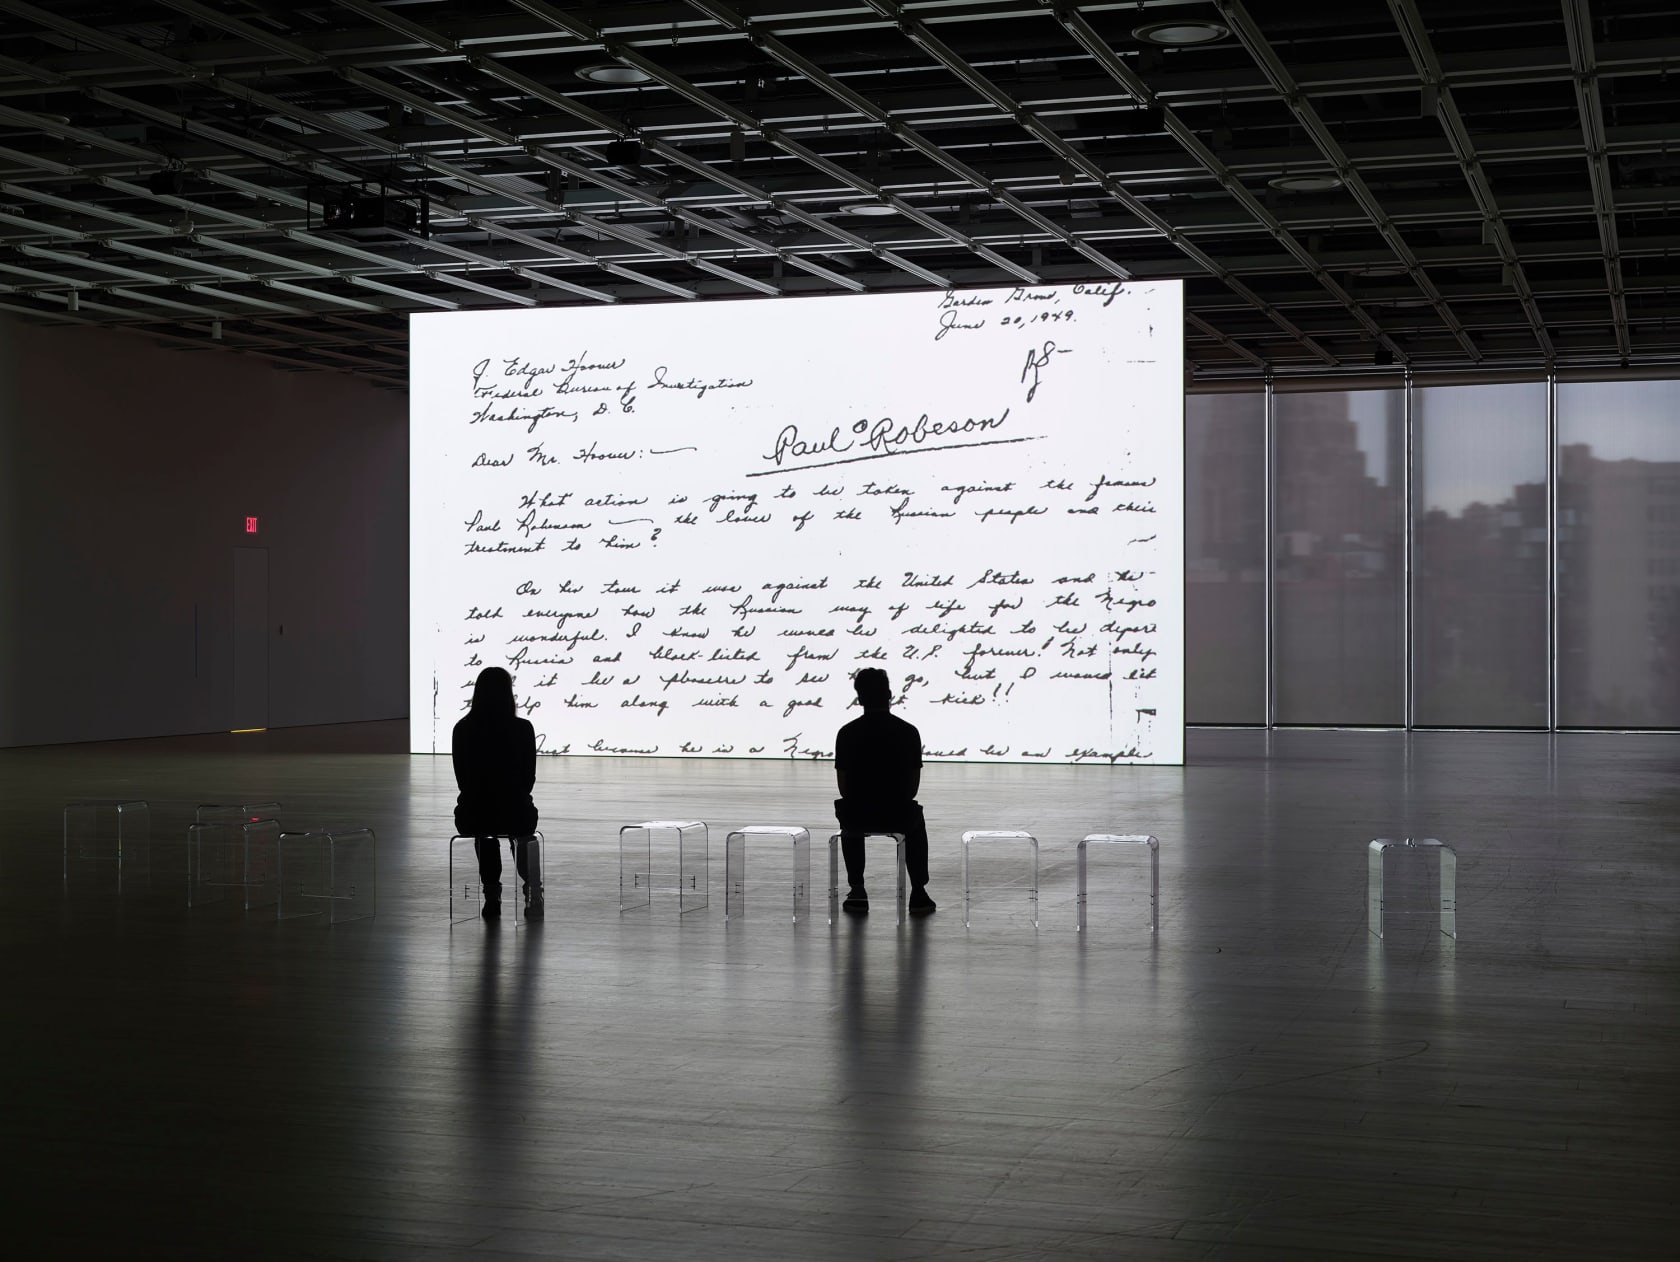 Garden Grove, Calif.
June 20, 1949.
J. Edgar Hoover
Federal Bureau of Investigation
Washington, D. C.
Paul Robeson
Dear Mr. Hoover:—
What action is going to be taken against the famous
Paul Robenson — the lover of the Russian people and their
treatment to him?
On his tour it was against the United States and he
told everyone how the Russian way of life for the Negro
is wonderful. I know he would be delighted to be deport
to Russia and black-listed from the U.S. forever! Not only
it be a pleasure to see go, but I would let
help him along with a good kick!!
Just because he is a Negro be an example
EXIT